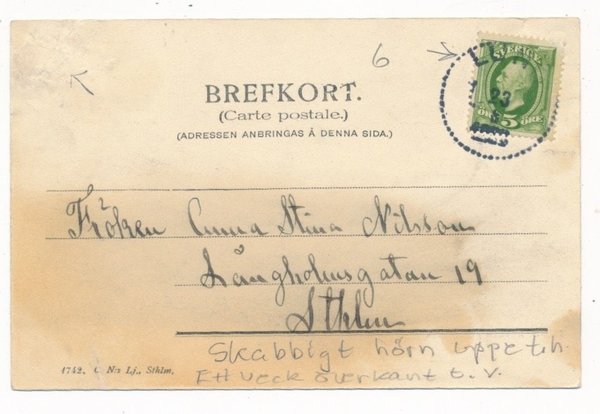 6
SVERIGE
23
5
ÖRE
BREFKORT.
(Carte postale.)
(ADRESSEN ANBRINGAS Å DENNA SIDA.)
Fröken Anna Stina Nilsson
Långholmsgatan 19
Sthlm
Skabbigt hörn uppe t.h.
Ett veck överkant t.v.
1742. C. N:s Lj., Sthlm.